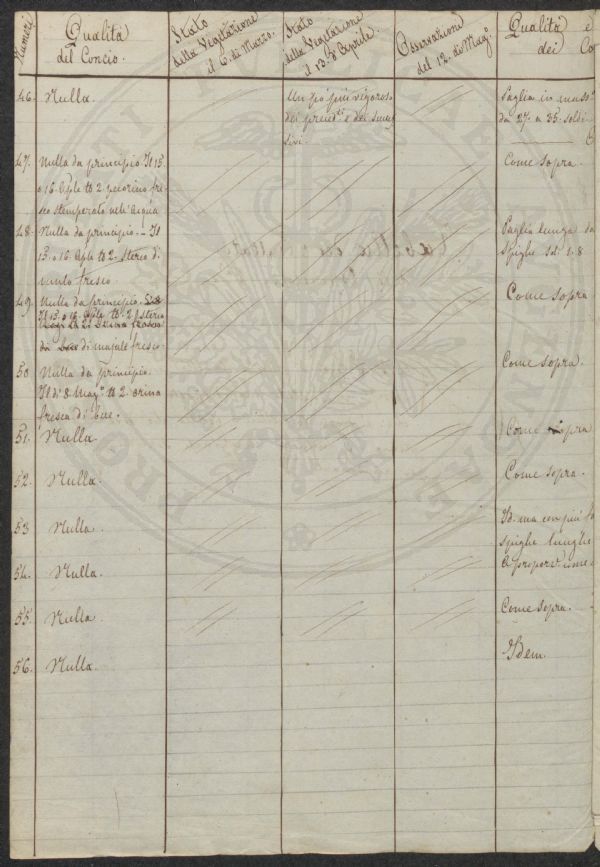 Numeri
Qualità
del Concio.
Stato
della Vegetazione
il 6. di Marzo.
Stato
della Vegetazione
il 13. d'Aprile.
Osservazioni
del 12. di Magº
Qualità e
dei Co
46. Nulla.
Un pò più vigoroso
dei preced.ti e dei
Paglia in
da 27. a 35. soldi
47. Nulla da principio. Il 15.
o 16. Aple tb 2 pecorino fre-
sco stemperato nell'acqua
Come sopra.
48. Nulla da principio. - Il
15. o 16. Aple tb 2. sterco di
fresco.
Paglia lunga
Spighe sol. 1.8
49. Nulla da principio.
Il 15. o 16. Aple tb. 2 sterco
di majale fresco.
Come sopra
50 Nulla da principio.
Il dì 8. Magº tb 2. orina
fresca di bue.
Come sopra.
51. Nulla.
Come sopra
52. Nulla.
Come sopra.
53 Nulla.
ma con più
spighe lunghe
54. Nulla.
55. Nulla
Come sopra.
56. Nulla
Idem
PRO